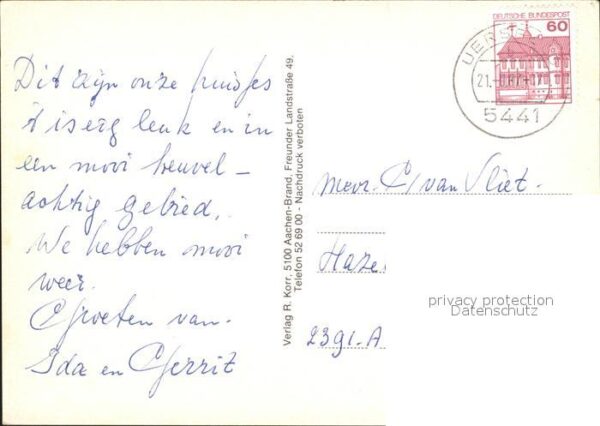 Dit zijn onze huisjes
't is erg leuk en in
een mooi heuvel-
achtig gebied,
We hebben mooi
weer.
Groeten van.
Ida en Gerrit
Verlag R. Korr, 5100 Aachen-Brand, Freunder Landstraße 49.
Telefon 52 69 00 - Nachdruck verboten
DEUTSCHE BUNDESPOST
60
5441
Mevr. C, van Vliet.
Haze
2391.A
privacy protection
Datenschutz